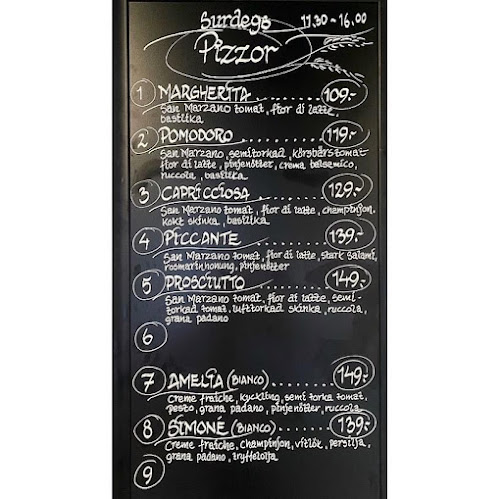 Surdegs 11.30 - 16.00
Pizzor
1 MARGHERITA .......... 109:-
San Marzano tomat, fior di latte,
basilika
2 POMODORO .......... 119:-
San Marzano, semitorkad, körsbärstomat
fior di latte, pinjenötter, crema balsamico,
ruccola, basilika
3 CAPRICCIOSA .......... 129:-
San Marzano tomat, fior di latte, champinjon,
Kokt skinka, basilika
4 PICCANTE .......... 139:-
San Marzano tomat, fior di latte, stark salami,
rosmarinhonung, pinjenötter
5 PROSCIUTTO .......... 149:-
San Marzano tomat, fior di latte, semi-
torkad tomat, lufttorkad skinka, ruccola,
grana padano
6
7 AMELIA (BIANCO) .......... 149:-
Creme fraiche, kyckling, semi torka tomat,
pesto, grana padano, pinjenötter, ruccola
8 SIMONE (BIANCO) .......... 139:-
Creme fraiche, champinjon, vitlök, persilja,
grana padano, tryffelolja
9